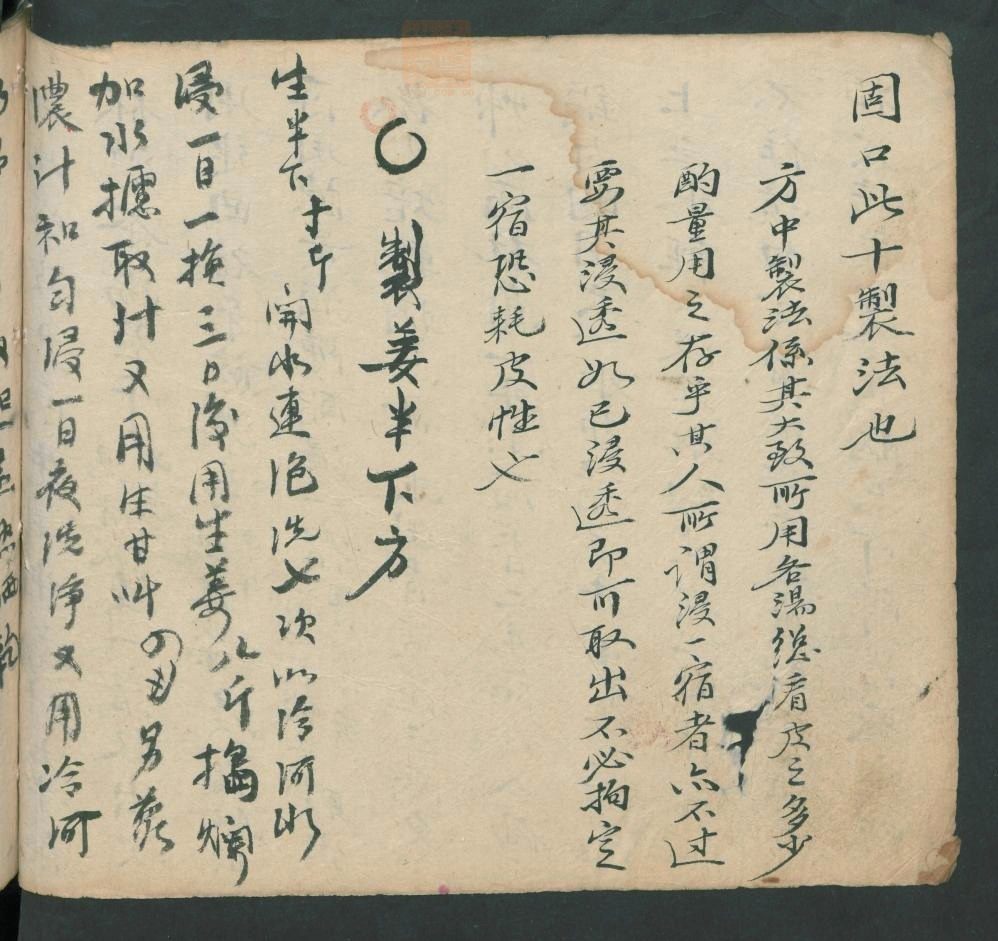 固口此十製法也
方中製法係其大致所用各湯總看皮之多少
酌量用之存乎其人所謂浸一宿者亦不过
要其浸透如已浸透即可取出不必拘定
一宿恐耗皮性也
〇製姜半下方
生半下十斤 開水連泡洗七次以冷河水
浸一日一換三日後用生姜八斤搗爛
加水攄取汁又用生甘叫 另蒸
濃汁和匀浸一日夜洗淨又用冷河